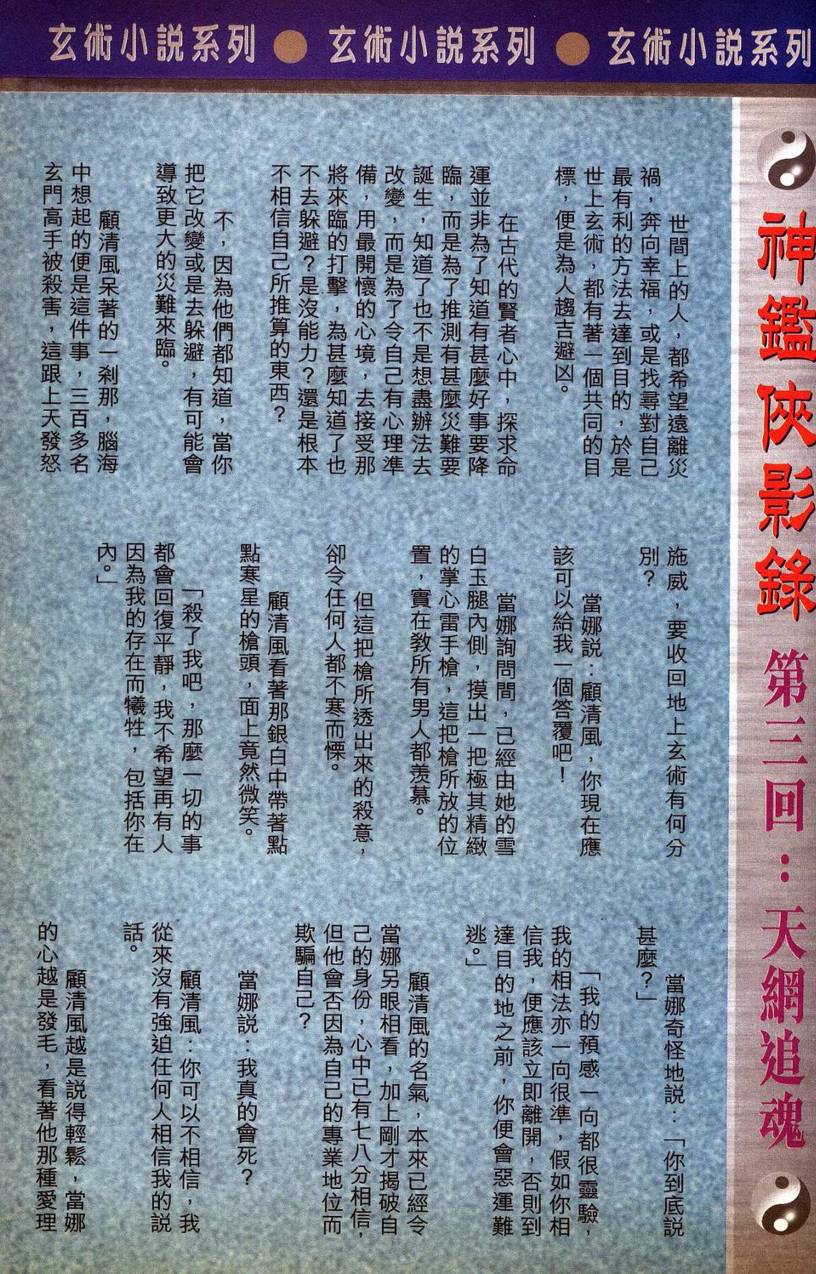 玄術小說系列 ● 玄術小說系列 ● 玄術小說系列
神鑑俠影錄 第三回：天網追魂
世間上的人，都希望遠離災
禍，奔向幸福，或是找尋對自己
最有利的方法去達到目的，於是
世上玄術，都有著一個共同的目
標，便是為人趨吉避凶。
在古代的賢者心中，探求命
運並非為了知道有甚麼好事要降
臨，而是為了推測有甚麼災難要
誕生，知道了也不是想盡辦法去
改變，而是為了令自己有心理準
備，用最開懷的心境，去接受那
將來臨的打擊，為甚麼知道了也
不去躲避？是沒能力？還是根本
不相信自己所推算的東西？
不，因為他們都知道，當你
把它改變或是去躲避，有可能會
導致更大的災難來臨。
顧清風呆著的一剎那，腦海
中想起的便是這件事，三百多名
玄門高手被殺害，這跟上天發怒
施威，要收回地上玄術有何分
別？
當娜說：顧清風，你現在應
該可以給我一個答覆吧！
當娜詢問間，已經由她的雪
白玉腿內側，摸出一把極其精緻
的掌心雷手槍，這把槍所放的位
置，實在教所有男人都羨慕。
但這把槍所透出來的殺意，
卻令任何人都不寒而慄。
顧清風看著那銀白中帶著點
點寒星的槍頭，面上竟然微笑。
「殺了我吧，那麼一切的事
都會回復平靜，我不希望再有人
因為我的存在而犧牲，包括你在
內。」
當娜奇怪地說：「你到底說
甚麼？」
「我的預感一向都很靈驗，
我的相法亦一向很準，假如你相
信我，便應該立即離開，否則到
達目的地之前，你便會惡運難
逃。」
顧清風的名氣，本來已經令
當娜另眼相看，加上剛才揭破自
己的身份，心中已有七八分相信，
但他會否因為自己的專業地位而
欺騙自己？
當娜說：我真的會死？
顧清風：你可以不相信，我
從來沒有強迫任何人相信我的說
話。
顧清風越是說得輕鬆，當娜
的心越是發毛，看著他那種愛理